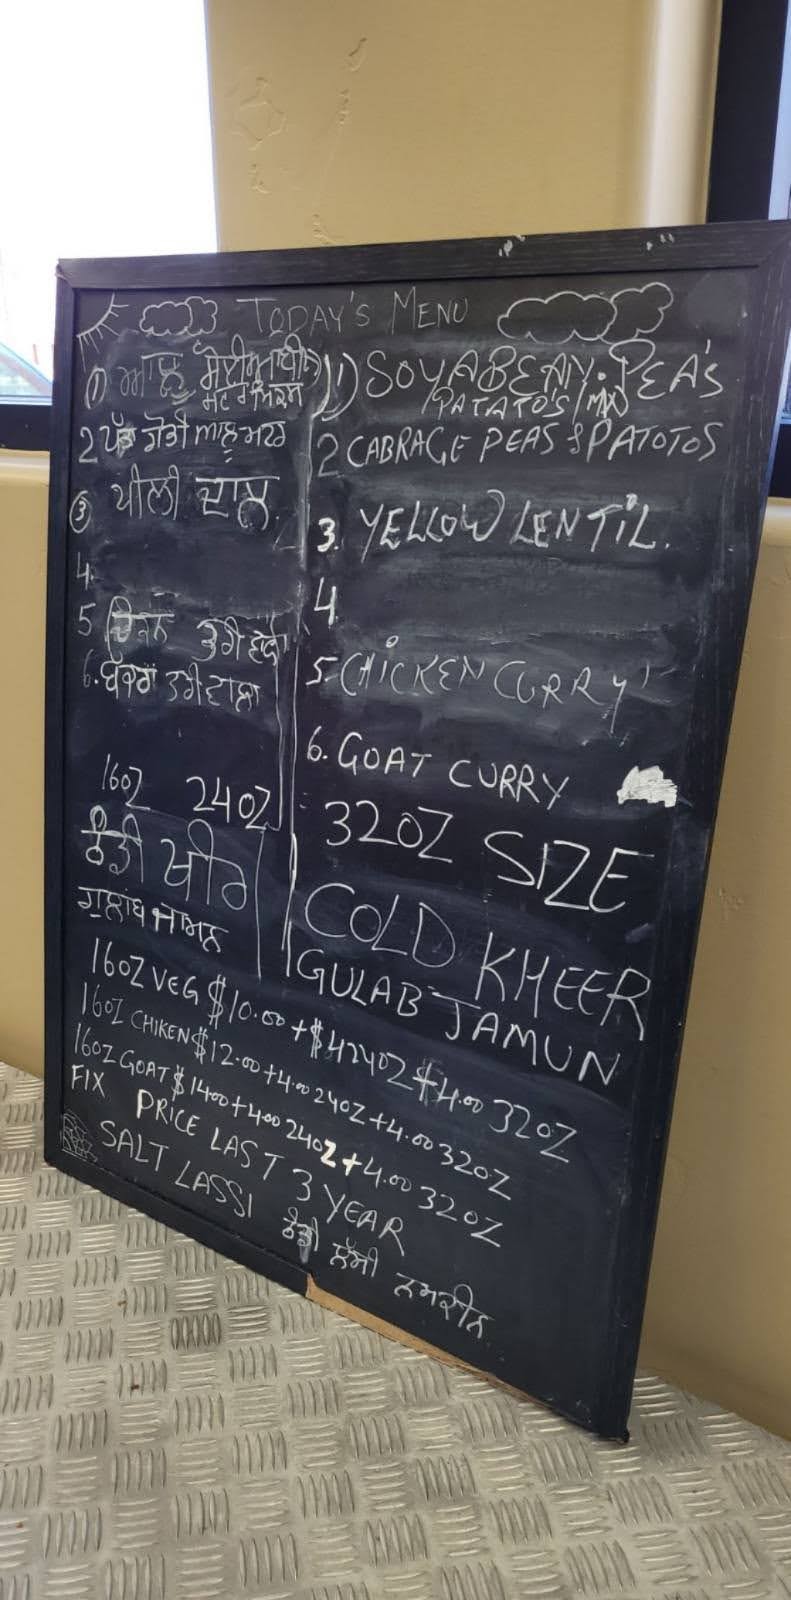 TODAY'S MENU
① ਆਲੂ ਸੋਈਆਬੀਨ
ਮਟਰ ਮਿਕਸ
2 ਪੱਤ ਗੋਭੀ ਆਲੂ ਮਟਰ
③ ਪੀਲੀ ਦਾਲ
4.
5 ਚਿਕਨ ਤਰੀ ਵਾਲਾ
6. ਬੱਕਰਾ ਤਰੀ ਵਾਲਾ
16OZ 24OZ
ਠੰਡੀ ਖੀਰ
ਗੁਲਾਬ ਜਾਮਨ
1) SOYABEAN. PEA'S
PATATO'S (MIX)
2 CABRAGE PEAS & PATOTOS
3. YELLOW LENTIL.
4
5. CHICKEN CURRY
6. GOAT CURRY
32OZ SIZE
COLD KHEER
GULAB JAMUN
16OZ VEG $10.00 + $4 24OZ + $4.00 32OZ
16OZ CHIKEN $12.00 + 4.00 24OZ + 4.00 32OZ
16OZ GOAT $14.00 + 4.00 24OZ + 4.00 32OZ
FIX PRICE LAST 3 YEAR
SALT LASSI ਠੰਡੀ ਲੱਸੀ ਨਮਕੀਨ